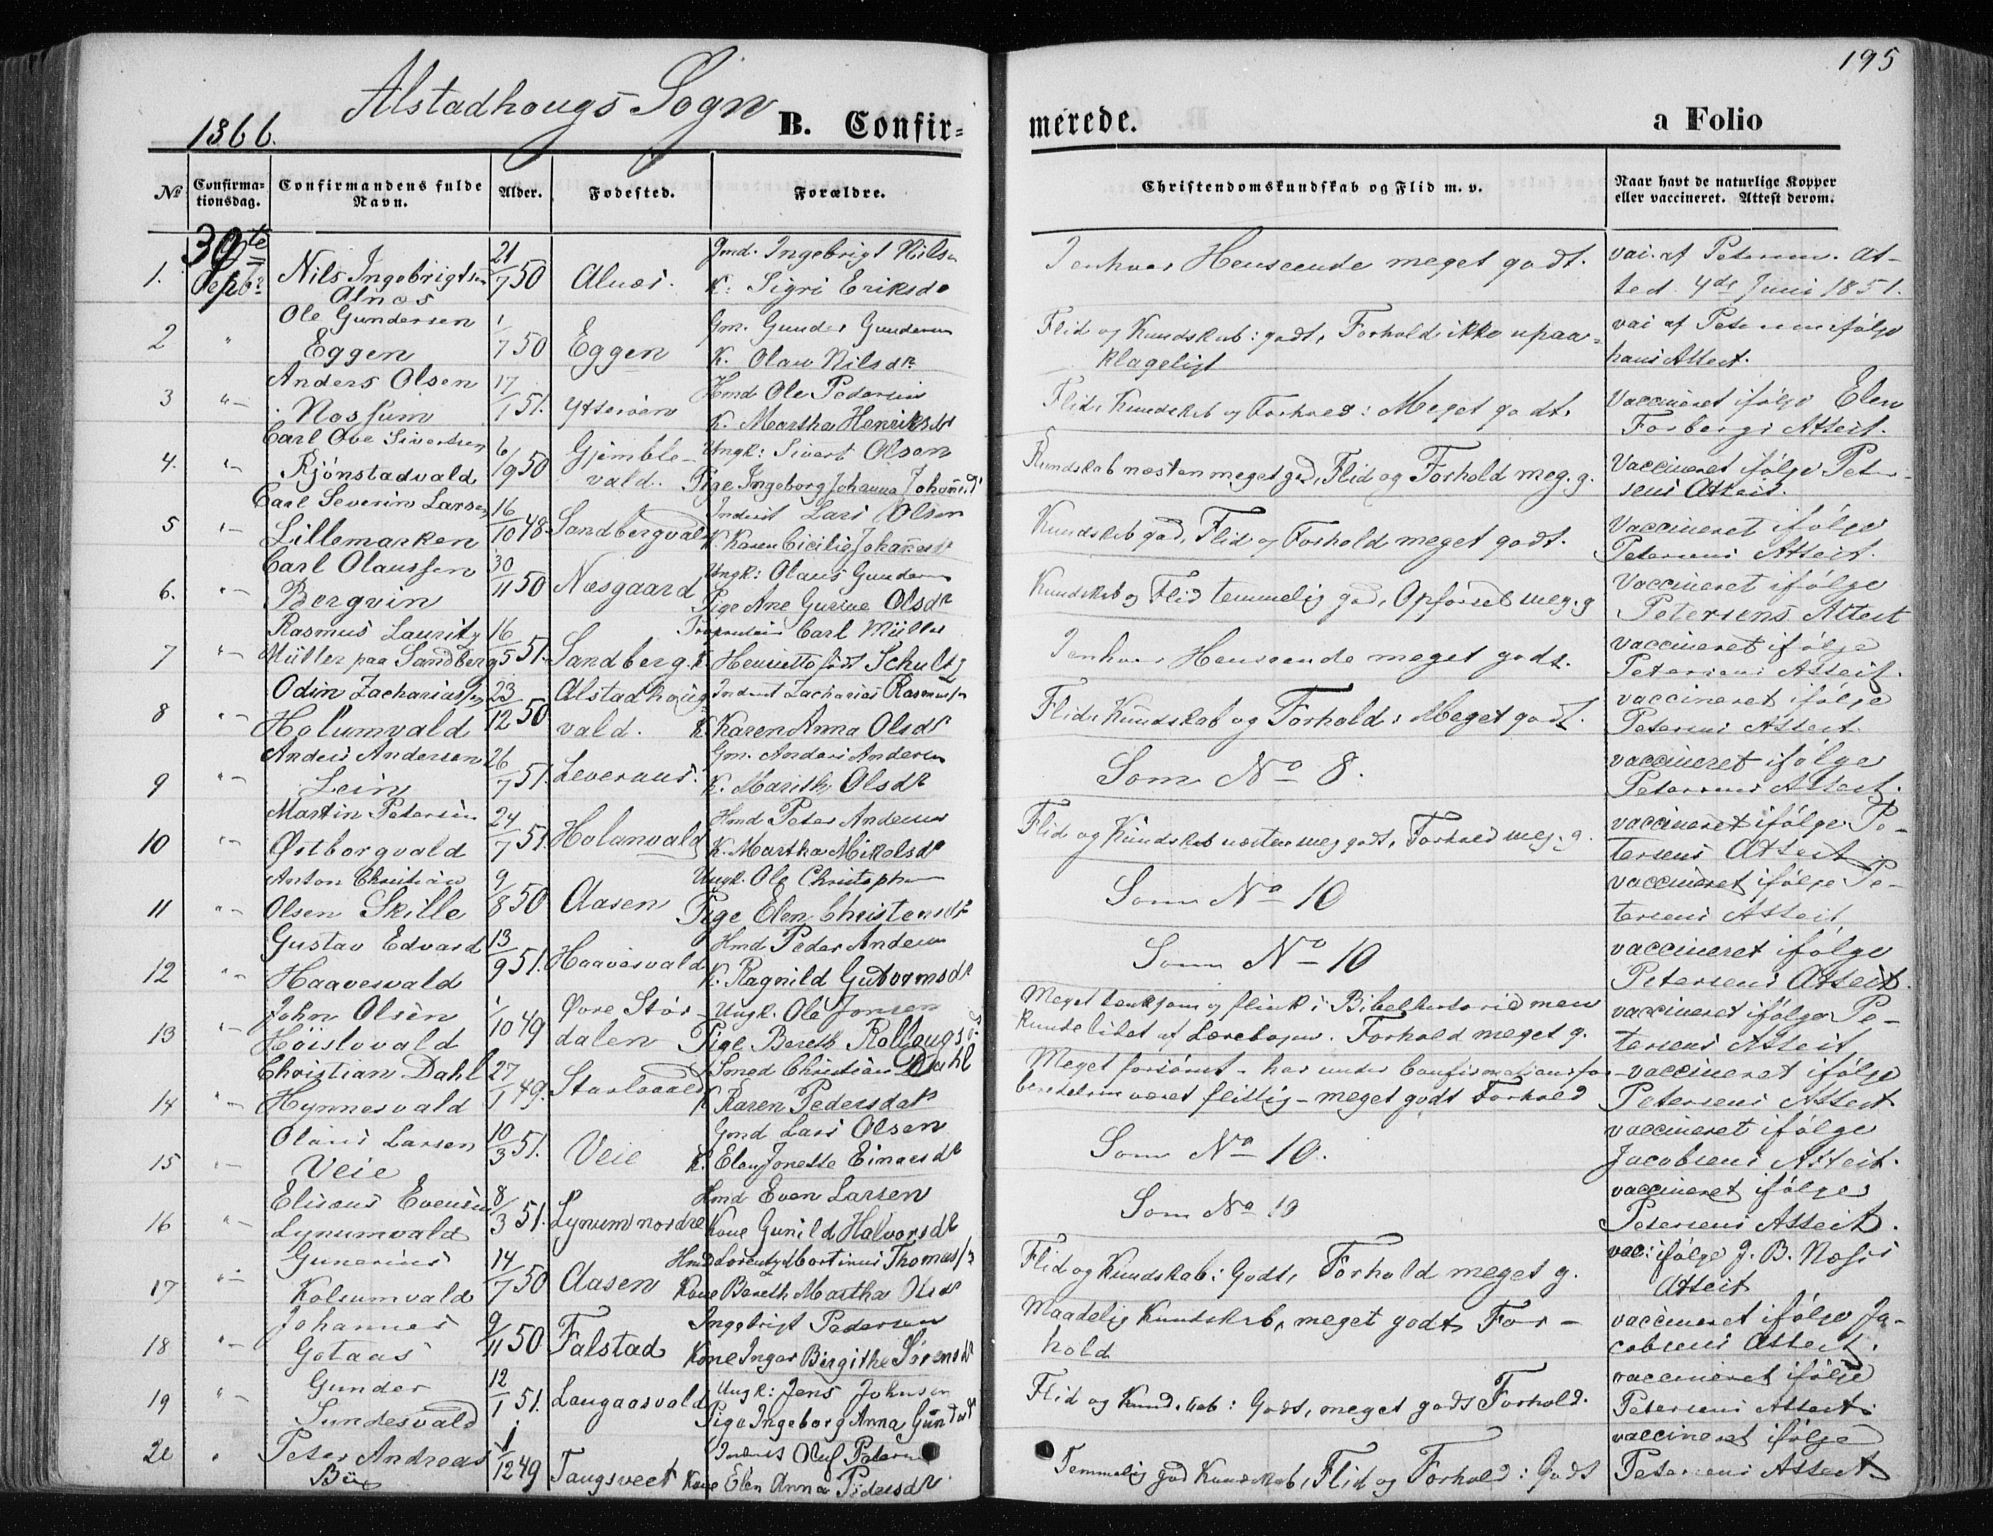 195
Alstadhougs Sogn
1866.
B. Confir=
merede.
a Folio
No
Confirma-
tionsdag.
Confirmandens fulde
Navn.
Alder.
Fødested.
Forældre.
Christendomskundskab og Flid m. v.
Naar havt de naturlige Kopper
eller vaccineret. Attest derom.
30te Septbr
1. Nils Ingebrigtsen Alnæs 21/7 50 Alnæs. Gmd. Ingebrigt Nilsen K: Sigri Eriksdr
I enhver Henseende meget godt. vac. af Petersen. At-
ted. 4de Juni 1851.
2 " Ole Gundersen Eggen 1/7 50 Eggen Gm. Gunder Gundersen K. Olau Nilsdr.
Flid og Kundskab: godt, Forhold ikke upaa=
klageligt
vac af Petersen ifølge
hans Attest.
3 " Anders Olsen Nossum 17/1 51. Ytterøen Hmd Ole Pedersen K. Martha Henriksdr
Flid, Kundskab og Forhold: Meget godt. Vaccineret ifølge Elen
Forbergs Attest.
4. " Carl Ove Sivertsen Rjönstadvald 6/9 50 Gjemble-
vald. Ungk: Sivert Olsen Pige Ingeborg Johanna Johansdr
Kundskab næsten meget god, Flid og Forhold meg. g. Vaccineret ifølge Peter-
sens Attest.
5 " Carl Severin Larsen Lillemarken 16/10 48. Sandbergvald Inderst Lars Olsen K. Karen Cicilie Johansdr
Kundskab god, Flid og Forhold meget godt. Vaccineret ifølge
Petersens Attest.
6. " Carl Olaussen Bergvin 30/11 50 Næsgaard Ungk: Olaus Gundersen Pige Ane Gurine Olsdr
Kundskab og Flid temmelig god, Opførsel meg. g Vaccineret ifølge
Petersens Attest
7 " Rasmus Lauritz Müller paa Sandberg 16/5 51. Sandberg. Proprietair Carl Müller K. Henriette født Schultz
I enhver Henseende meget godt. vaccineret ifølge
Petersens Attest.
8 " Odin Zachariassen Holumvald 23/12 50 Alstadhoug
vald. Inderst Zacharias Rasmussen K Karen Anna Olsdr
Flid, Kundskab og Forhold: Meget godt. vaccineret ifølge
Petersens Attest.
9 " Anders Andersen Lein 26/7 51. Leveraas. Gm. Anders Andersen K. Marith Olsdr
Som No 8. vaccineret ifølge
Petersens Attest.
10 " Martin Petersen Østborgvald 24/7 51 Holanvald Hmd Peter Andersen K. Martha Mikalsdr
Flid og Kundskab næsten meg godt, Forhold meg. g. vaccineret ifølge Pe-
tersens Attest
11 " Anton Christian Olsen Skille 9/8 50 Aasen Ungk. Ole Christophersen Pige Elen Christensdr
Som No 10 vaccineret ifølge Pe-
tersens Attest
12 " Gustav Edvard Haavesvald 13/9 51. Haavesvald Hmd Peder Andersen K. Ragnild Gutormsdr
Som No 10 vaccineret ifølge
Petersens Attest.
13 " John Olsen Höistovald 1/10 49 Øvre Stör-
dalen Ungk. Ole Jonsen Pige Bereth Rollaugsdr
Meget tænksom og flink i Bibelhistorie men
kunde lidet af Lærebogen. Forhold meget g.
vaccineret ifølge Pe-
tersens Attest
14 " Christian Dahl Hynnesvald 27/1 49. Christian Dahl K Karen Pedersdatr
Meget forsømt - har under Confirmationsfor-
beredelsen været flittig - meget godt Forhold
vaccineret ifølge
Petersens Attest
15 " Olaus Larsen Veie 10/3 51. Veie Gmd Lars Olsen K. Elen Jonette Einarsdr
Som No 10. vaccineret ifølge
Jacobsens Attest.
16 " Elisæus Evensen Lynumvald 8/3 51. Lynum nordre Hmd Even Larsen Kone Gunild Halvorsdr
Som No 10 vaccineret ifølge
Petersens Attest.
17 " Gunerius Kolsumvald 14/7 50 Aasen Hmd Lorents Martinus Thomassen Kone Bereth Martha Olsdr
Flid og Kundskab: Godt, Forhold meget g. vac: ifølge J. B. Næss's
Attest
18 " Johannes Gotaas 9/11 50 Falstad Ingebrigt Pedersen Kone Inger Birgithe Sörensdr
Maadelig Kundskab, meget godt For-
hold
vaccineret ifølge Ja-
cobsens Attest.
19 " Gunder Sundesvald 12/1 51. Langaasvald Ungk: Jens Johnsen Pige Ingeborg Anna Gundersdr
Flid og Kundskab: Godt, meget godt Forhold. vaccineret ifølge
Petersens Attest.
20 " Peter Andreas Bü 1/12 49 Taugsveet Inderst Oluf Petersen Kone Elen Anna Pedersdr
Temmelig god Kundskab, Flid og Forhold: Godt vaccineret ifølge
Petersens Attest